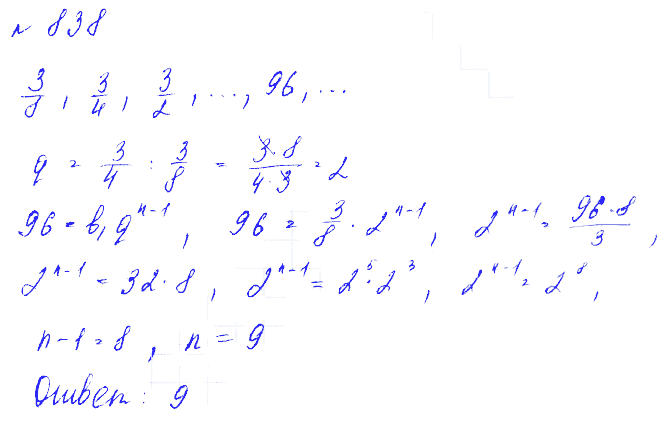 № 838
3/8, 3/4, 3/2, ..., 96, ...
q = 3/4 : 3/8 = (3·8)/(4·3) = 2
96 = b₁qⁿ⁻¹, 96 = 3/8 · 2ⁿ⁻¹, 2ⁿ⁻¹ = (96·8)/3,
2ⁿ⁻¹ = 32·8, 2ⁿ⁻¹ = 2⁵·2³, 2ⁿ⁻¹ = 2⁸,
n-1 = 8, n = 9
Ответ: 9